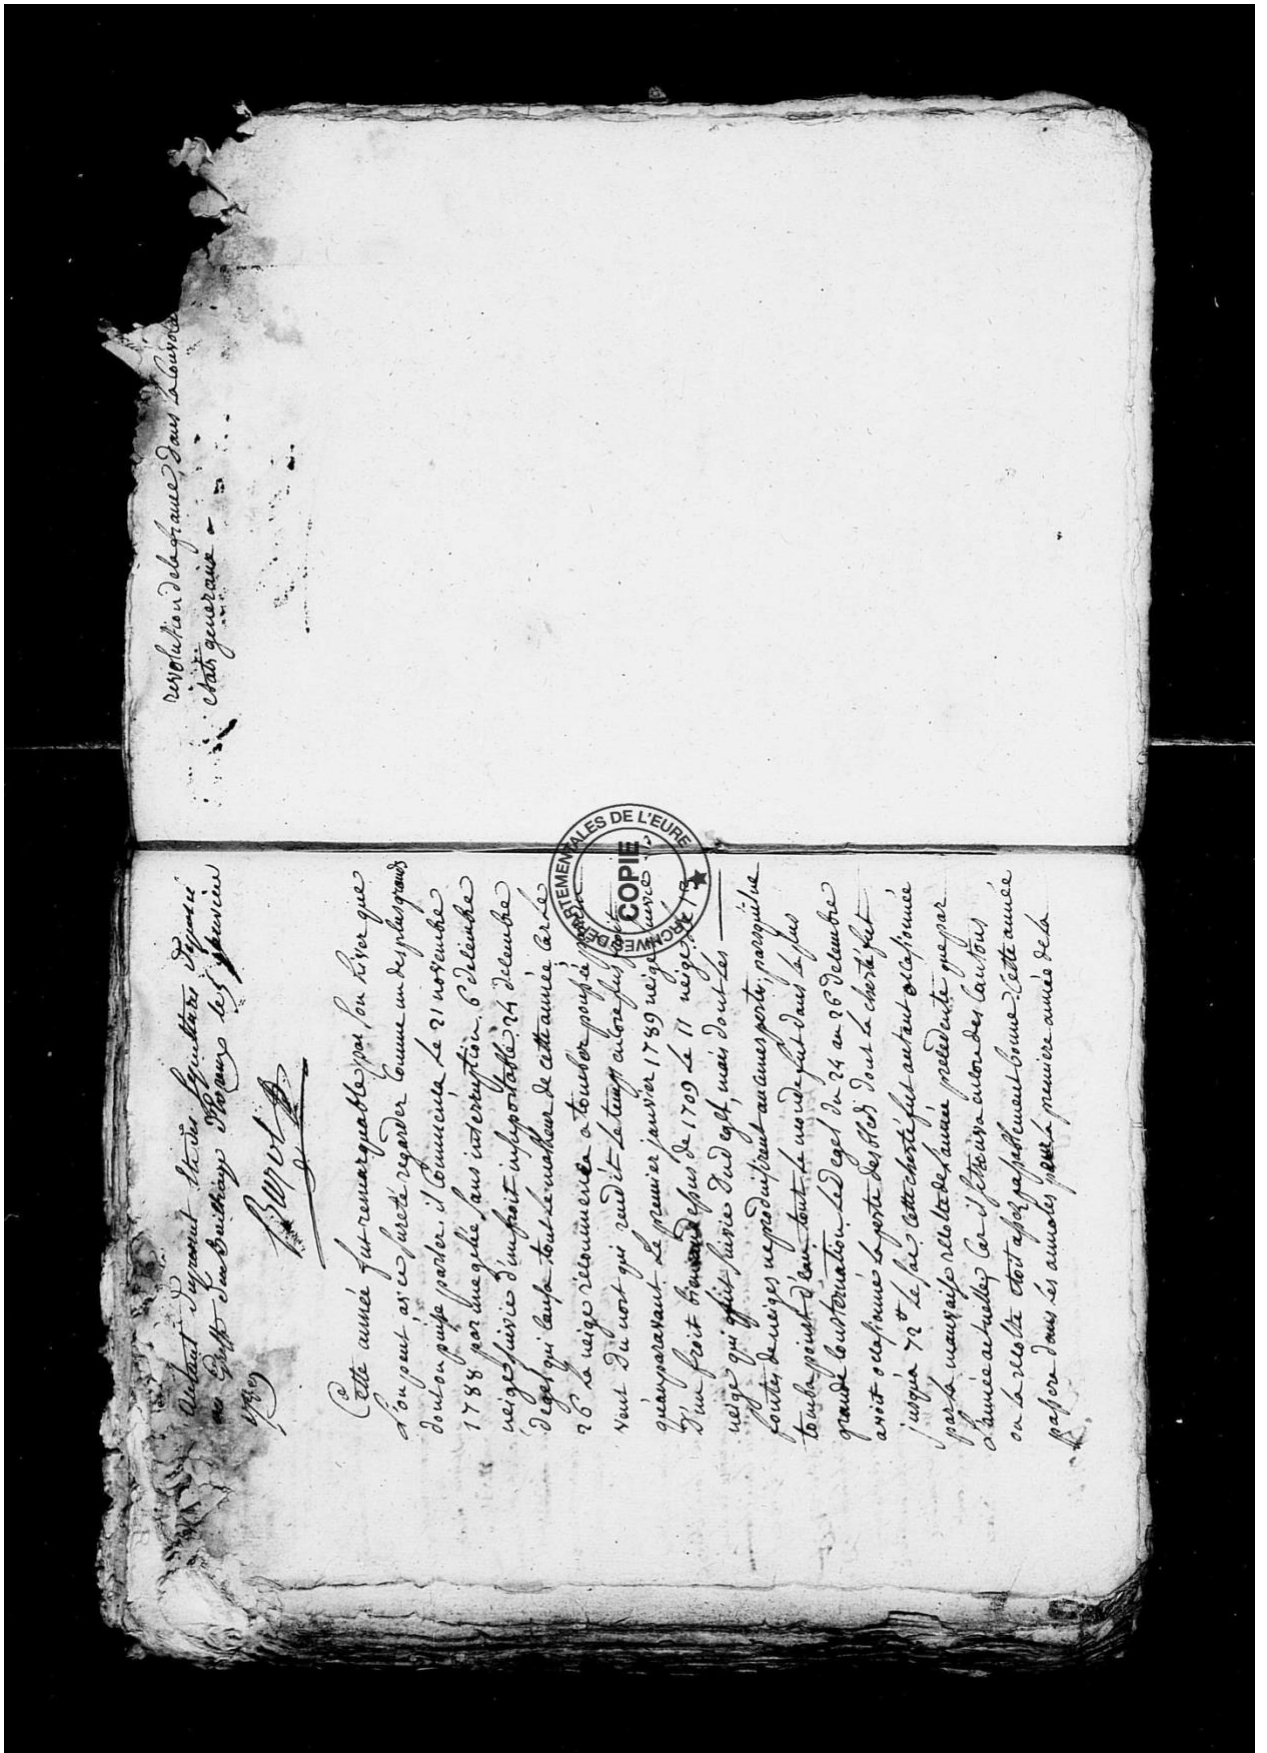 Autant du présent
au Greffe du Bailliage
1789
Cette année fut remarquable par son hiver que
L'on peut avec sureté regarder Comme un des plus grands
dont on puisse parler. il Commença Le 21 novembre
1788 par une gelée sans interruption. 6 décembre
neige suivie d'un froit insuportable. 24 décembre
degel qui causa tout le malheur de cette année Car Le
26 La neige recommença a tomber
vent du nort qui rendit Le temps encore plus froit
qu'auparavant Le premier janvier 1789 neige suivie
d'un froit depuis de 1709 Le 11 neige, Le 13
neige qui fut suivie du degel, mais dont Les
fontes de neiges ne produisirent aucunes pertes, parsqu'il ne
tomba point d'eau, tout Le monde fut dans la plus
grande Consternation. Le degel du 24 au 26 decembre
avoit ocasionné la perte des bleds dont la cherté fut
jusqu'a 72 Le sac. cette cherté fut autant ocasionnée
par la mauvaise recolte de l'année précédente que par
L'année actuelle, Car il se trouva encore des Cantons
ou la recolte etoit assez passablement bonne. Cette année
passera dans les annales pour la premiere année de la
revolution de la france, dans la
etats generaux
ARCHIVES DÉPARTEMENTALES DE L'EURE
COPIE